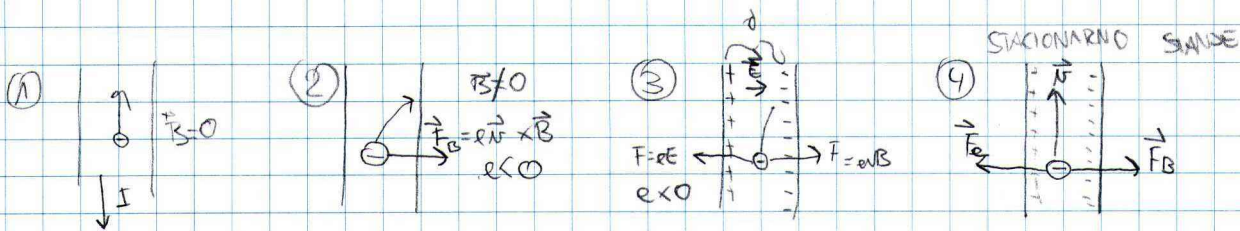 ①
B⃗=0
I
②
B⃗≠0
F⃗_B = ev⃗ × B⃗
e<0
③
d
+ -
E⃗
F=eE
e<0
F=evB
④
STACIONARNO STANJE
v⃗
F⃗e
F⃗B